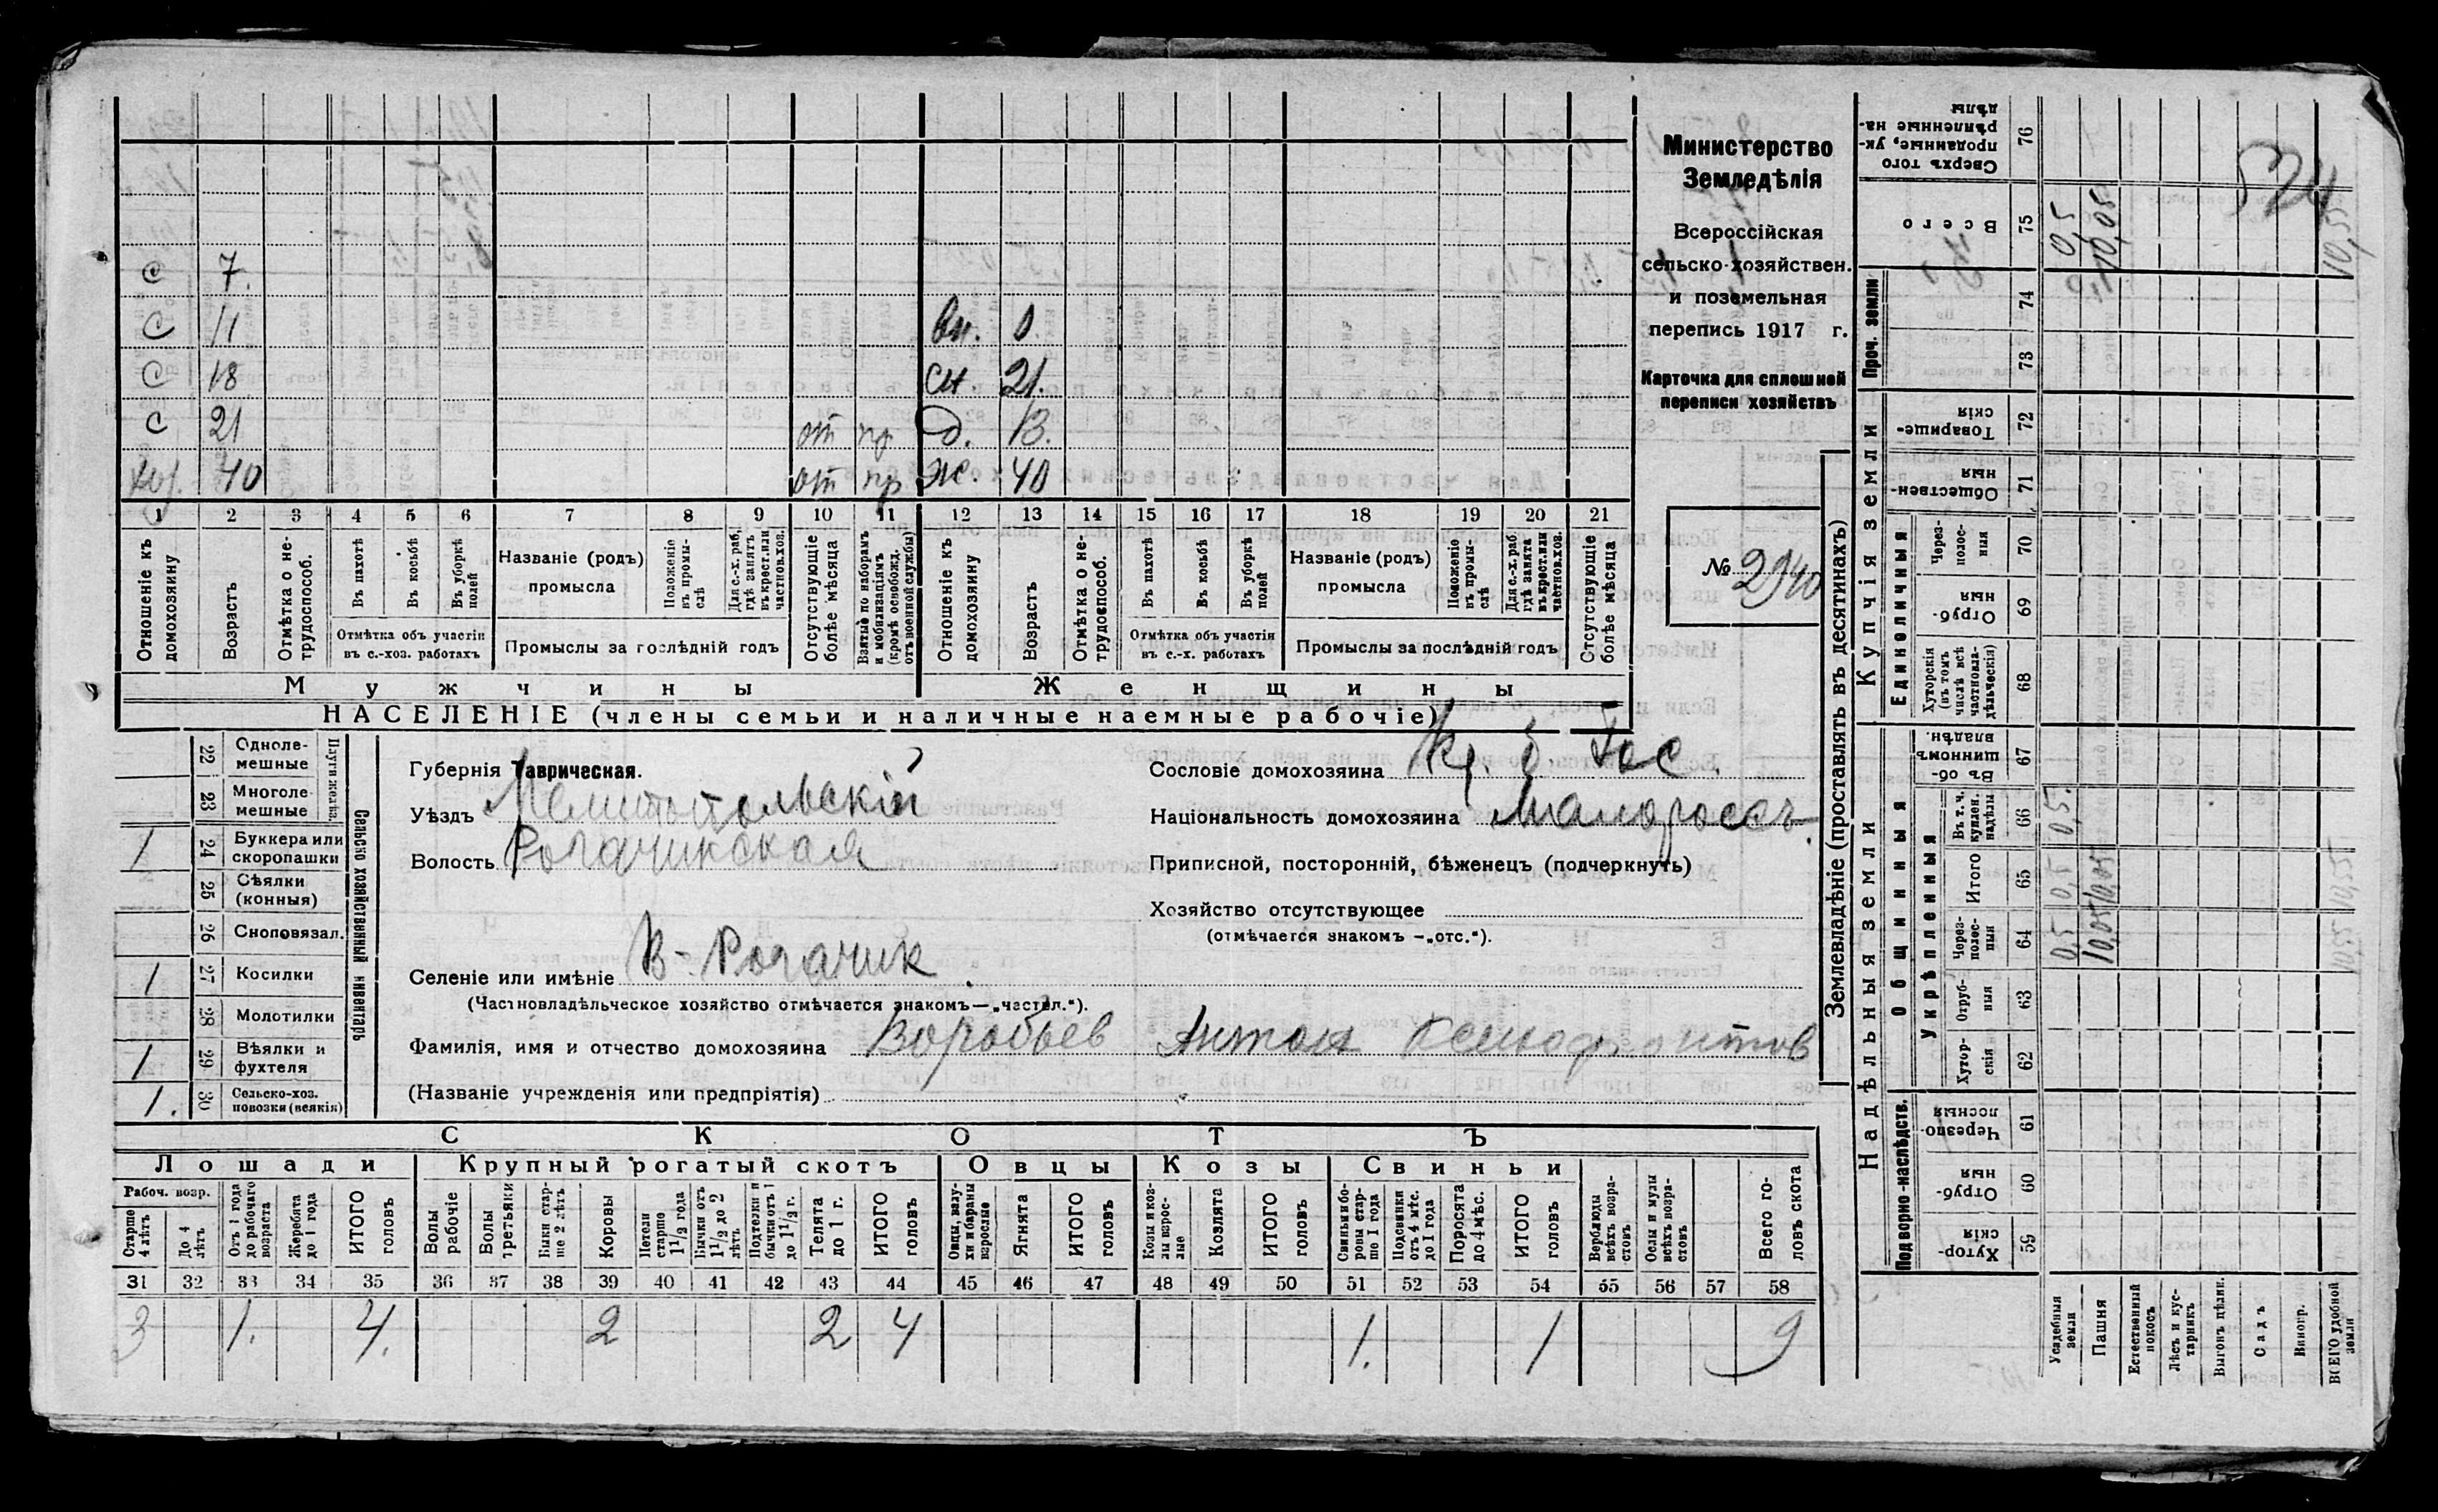 Министерство
Земледѣлія
Всероссійская
сельско-хозяйствен.
и поземельная
перепись 1917 г.
Карточка для сплошной
переписи хозяйствъ
№ 2940
с 7.
с 11 вн. 0.
с 18 сн. 21.
с 21 от пр д. 13.
хоз. 40 от пр ж. 40
1 2 3 4 5 6 7 8 9 10 11 12 13 14 15 16 17 18 19 20 21
Отношеніе къ домохозяину
Возрастъ
Отмѣтка о нетрудоспособ.
Въ пахотѣ
Въ косьбѣ
Въ уборкѣ полей
Отмѣтка объ участіи въ с.-хоз. работахъ
Названіе (родъ) промысла
Положеніе въ промыслѣ
Для с.-х. раб. гдѣ занятъ въ крест. или частнов. хоз.
Промыслы за послѣдній годъ
Отсутствующіе болѣе мѣсяца
Взятые по наборамъ и мобилизаціямъ (кромѣ освобожд. отъ военной службы)
Отношеніе къ домохозяину
Возрастъ
Отмѣтка о нетрудоспособ.
Въ пахотѣ
Въ косьбѣ
Въ уборкѣ полей
Отмѣтка объ участіи въ с.-х. работахъ
Названіе (родъ) промысла
Положеніе въ промыслѣ
Для с.-х. раб. гдѣ занята въ крест. или частнов. хоз.
Промыслы за послѣдній годъ
Отсутствующіе болѣе мѣсяца
Мужчины Женщины
НАСЕЛЕНІЕ (члены семьи и наличные наемные рабочіе)
22 Однолемешные
23 Многолемешные
Плуги желѣз.
1 24 Буккера или скоропашки
25 Сѣялки (конныя)
26 Сноповязал.
1 27 Косилки
28 Молотилки
1 29 Вѣялки и фухтеля
1. 30 Сельско-хоз. повозки (всякія)
Сельско хозяйственный инвентарь
Губернія Таврическая.
Уѣздъ Мелитопольскій
Волость Рогачикская
Селеніе или имѣніе В-Рогачик
(Частновладѣльческое хозяйство отмѣчается знакомъ—„частвл.“).
Фамилія, имя и отчество домохозяина Воробьев Антон Ксенофонтов
(Названіе учрежденія или предпріятія)
Сословіе домохозяина Кр. б. Гос.
Національность домохозяина Малороссъ.
Приписной, посторонній, бѣженецъ (подчеркнуть)
Хозяйство отсутствующее
(отмѣчается знакомъ —„отс.“).
СКОТЪ
Лошади Крупный рогатый скотъ Овцы Козы Свиньи
Рабоч. возр.
Старше 4 лѣтъ
До 4 лѣтъ
Отъ 1 года до рабочаго возраста
Жеребята до 1 года
ИТОГО головъ
Волы рабочіе
Волы третьяки
Быки старше 2 лѣтъ
Коровы
Нетели старше 1 1/2 года
Бычки отъ 1 1/2 до 2 лѣтъ
Подтелки и бычки отъ 1 до 1 1/2 г.
Телята до 1 г.
ИТОГО головъ
Овцы, валухи и бараны взрослые
Ягнята
ИТОГО головъ
Козы и козлы взрослые
Козлята
ИТОГО головъ
Свиньи боровы старше 1 года
Подсвинки отъ 4 мѣс. до 1 года
Поросята до 4 мѣс.
ИТОГО головъ
Верблюды всѣхъ возрастовъ
Ослы и мулы всѣхъ возрастовъ
Всего головъ скота
31 32 33 34 35 36 37 38 39 40 41 42 43 44 45 46 47 48 49 50 51 52 53 54 55 56 57 58
3 1. 4. 2 2 4 1. 1 9
Землевладѣніе (проставлять въ десятинахъ)
Надѣльныя земли Купчія земли Проч. земли
Подворно-наслѣдств. Общинныя Единоличныя
Укрѣпленныя
Хуторскія 59
Отрубныя 60
Черезполосныя 61
Хуторскія 62
Отрубныя 63
Черезполосныя 64
Итого 65
Въ т. ч. куплен. надѣлы 66
Въ общинномъ владѣн. 67
Хуторскія (въ томъ числѣ всѣ частновладѣльческія) 68
Отрубныя 69
Черезполосныя 70
Общественныя 71
Товарищескія 72
73
74
Всего 75
Сверхъ того проданные, укрѣпленные надѣлы 76
Усадебныя земли 0,5 0,5 0,5. 0,5
Пашня 10,05 10,05 10,05
Естественный покосъ
Лѣсъ и кустарникъ
Выгонъ цѣлин.
Садъ
Виногр.
ВСЕГО удобной земли 10,55 10,55 10,55